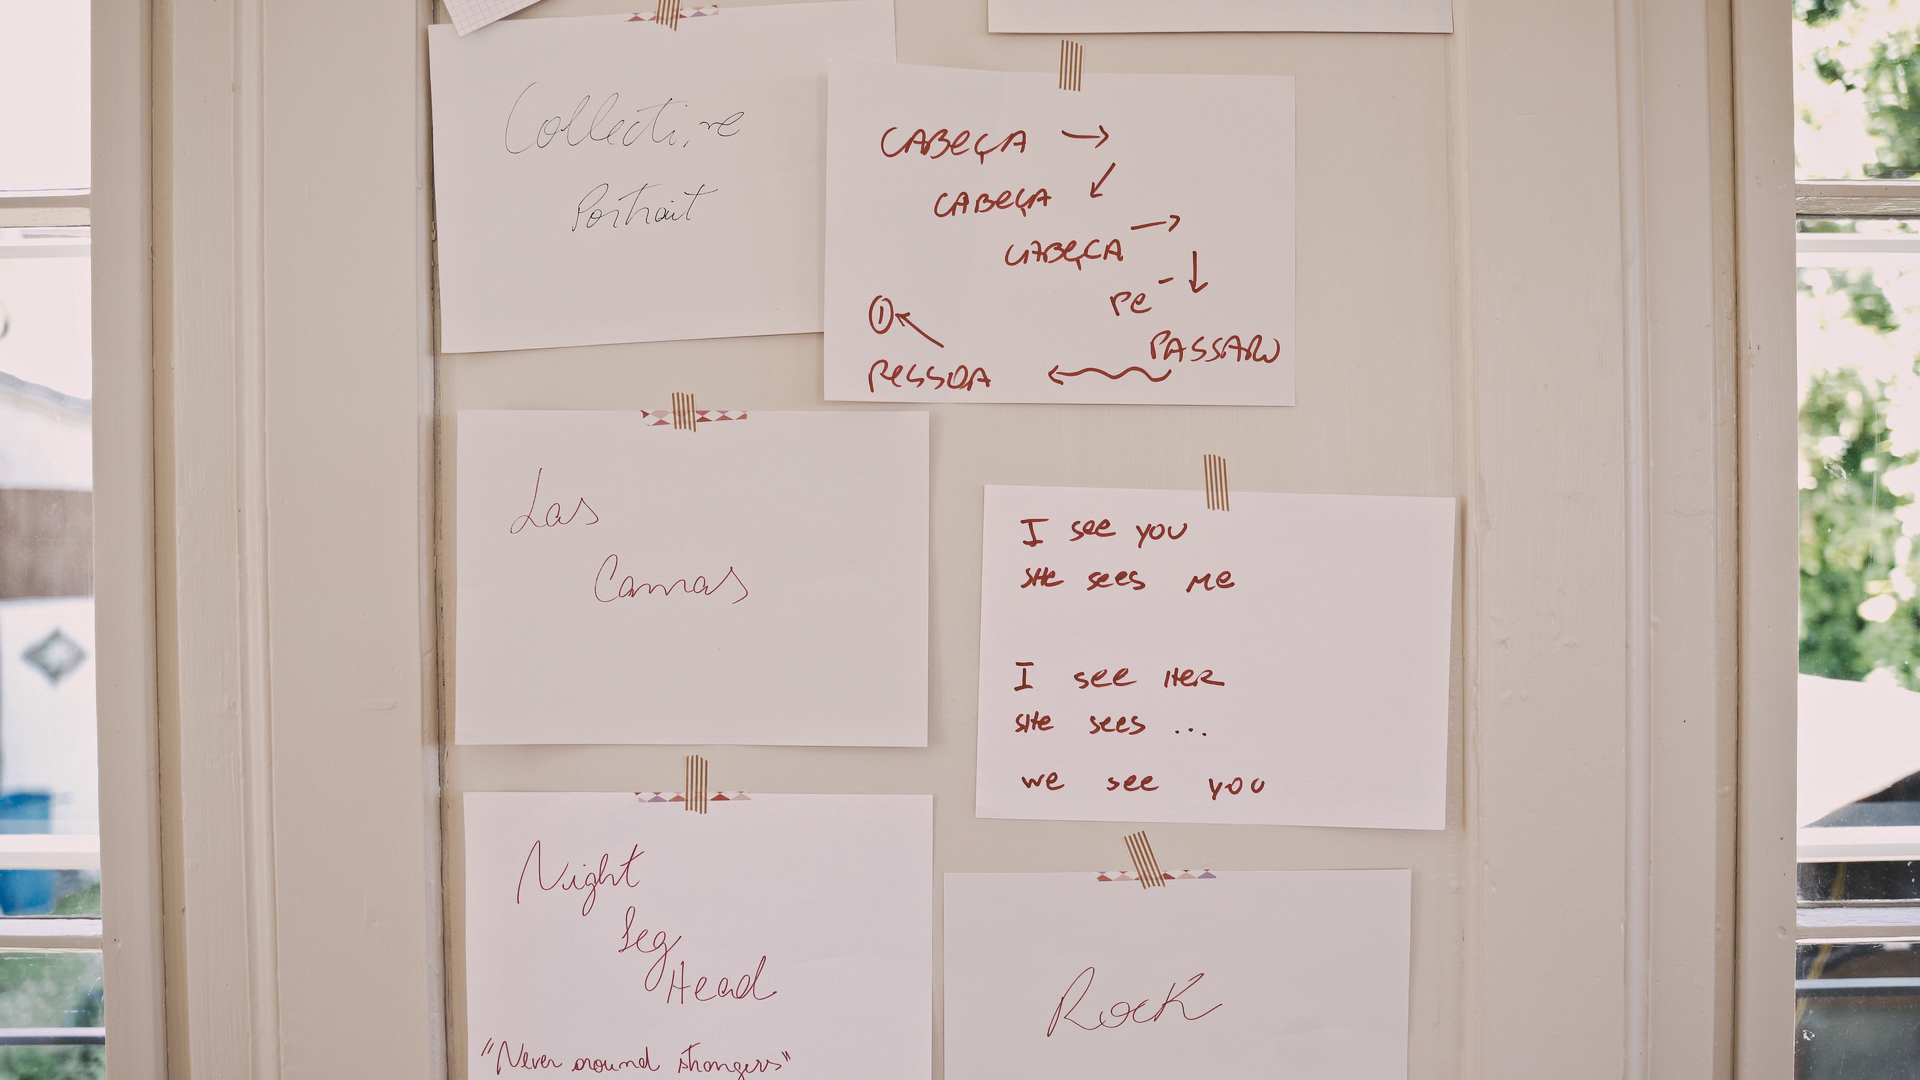 Collective
Portrait
CABEÇA →
CABEÇA ↙
CABEÇA →
PE - ↓
PASSARO
① ↖
PESSOA ←
Las
Camas
I see you
SHE sees ME
I see HER
SHE sees ...
we see you
Night
Leg
Head
"Never around strangers"
Rock